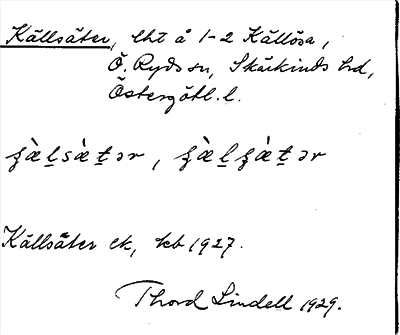 Källsäter, lht å 1-2 Källösa,
Ö. Ryds sn, Skärkinds hd,
Östergötl. l.
Källsäter ek, kb 1927.
Thord Lindell 1929.